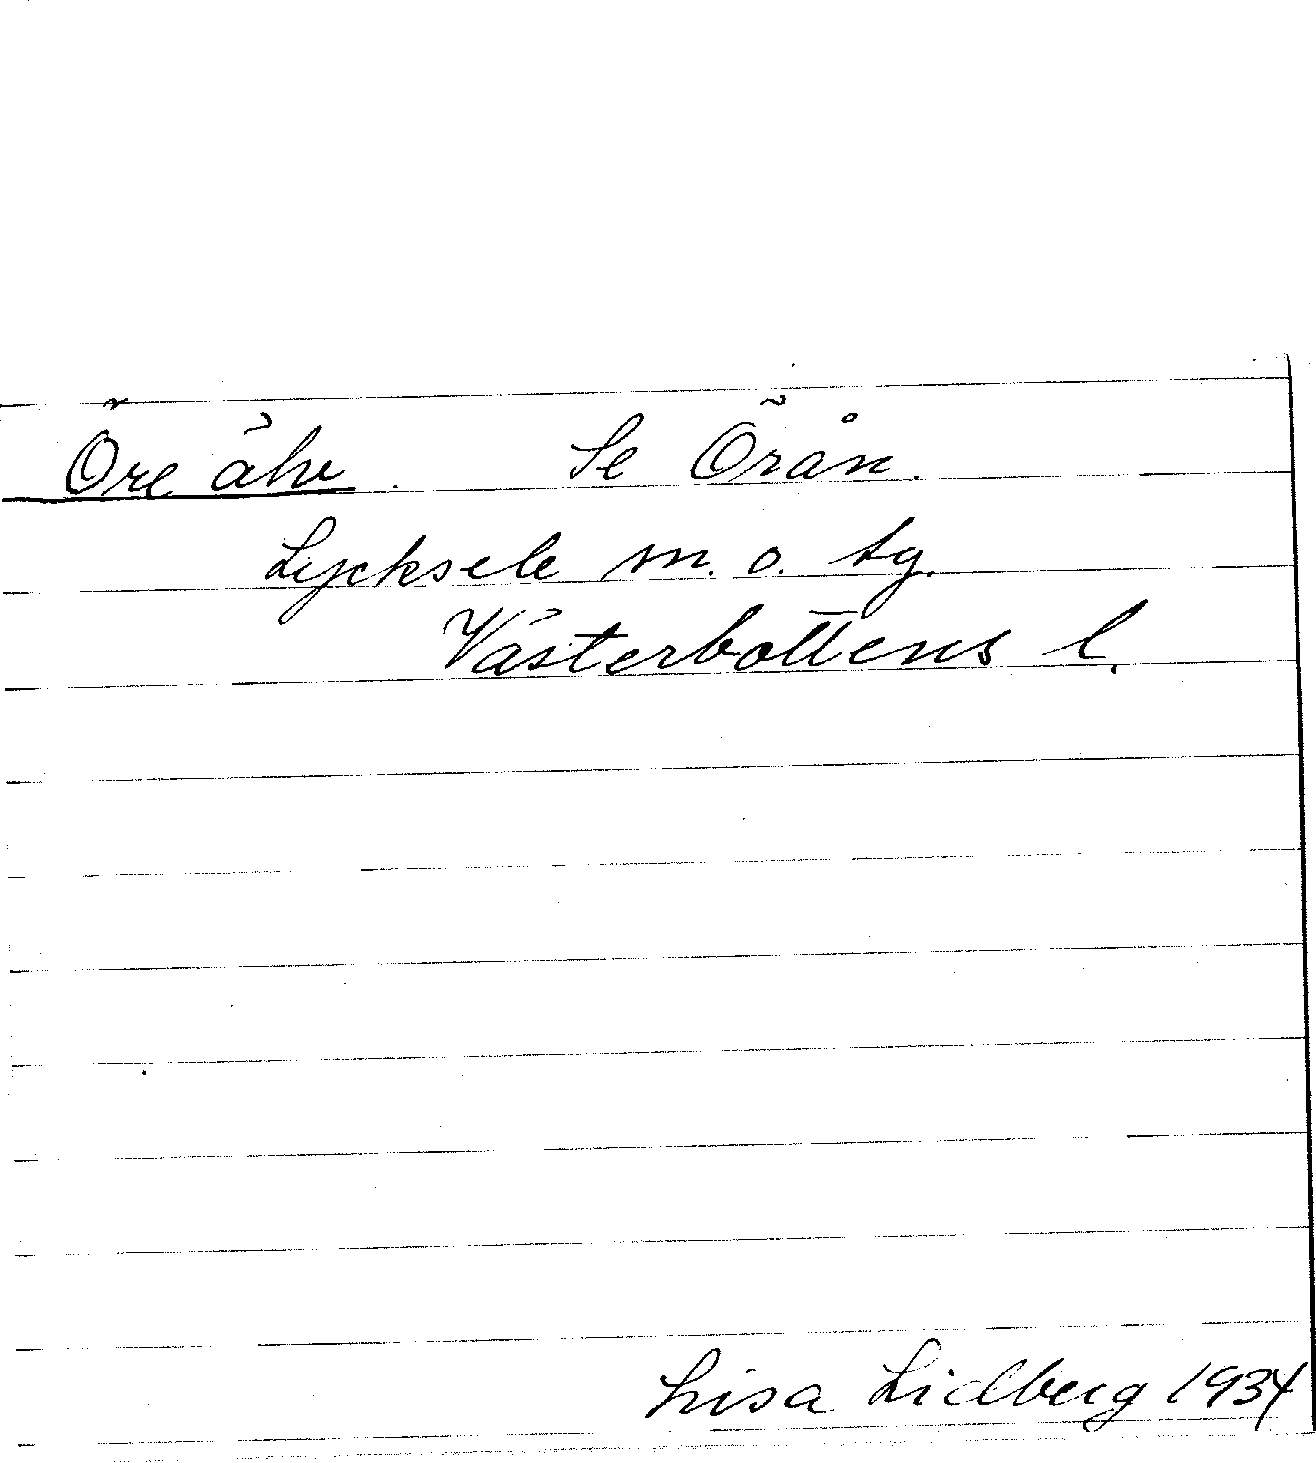 Öre älv. Se Örån.
Lycksele sn. o. tg.
Västerbottens l.
Lisa Lidberg 1934